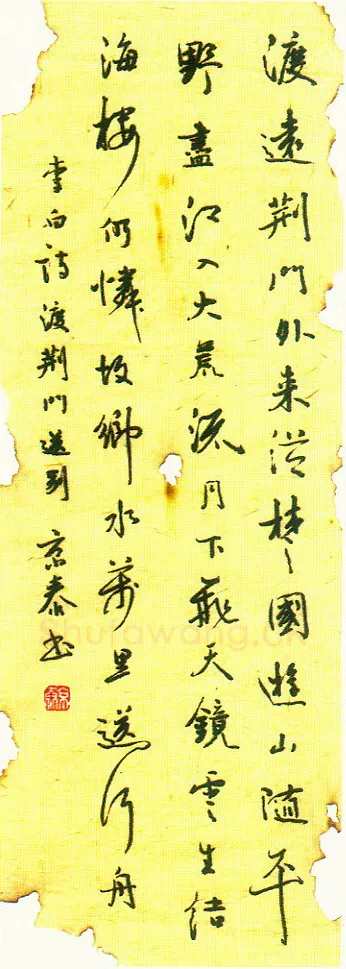 渡遠荆門外来從楚國遊山隨平
野盡江入大荒流月下飛天鏡雲生結
海楼仍憐故鄉水萬里送行舟
李白詩渡荆門送别 京泰书
Shufawang.cn